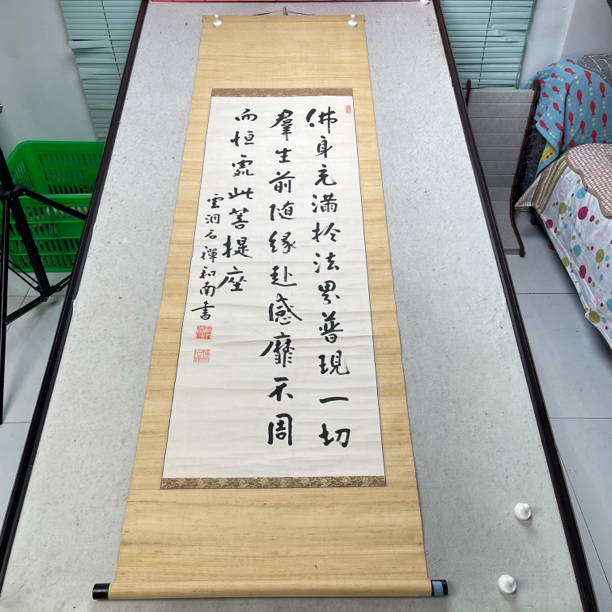 佛身充滿於法界普現一切
羣生前随緣赴感靡不周
而恒處此菩提座
雲洞石禪和南書